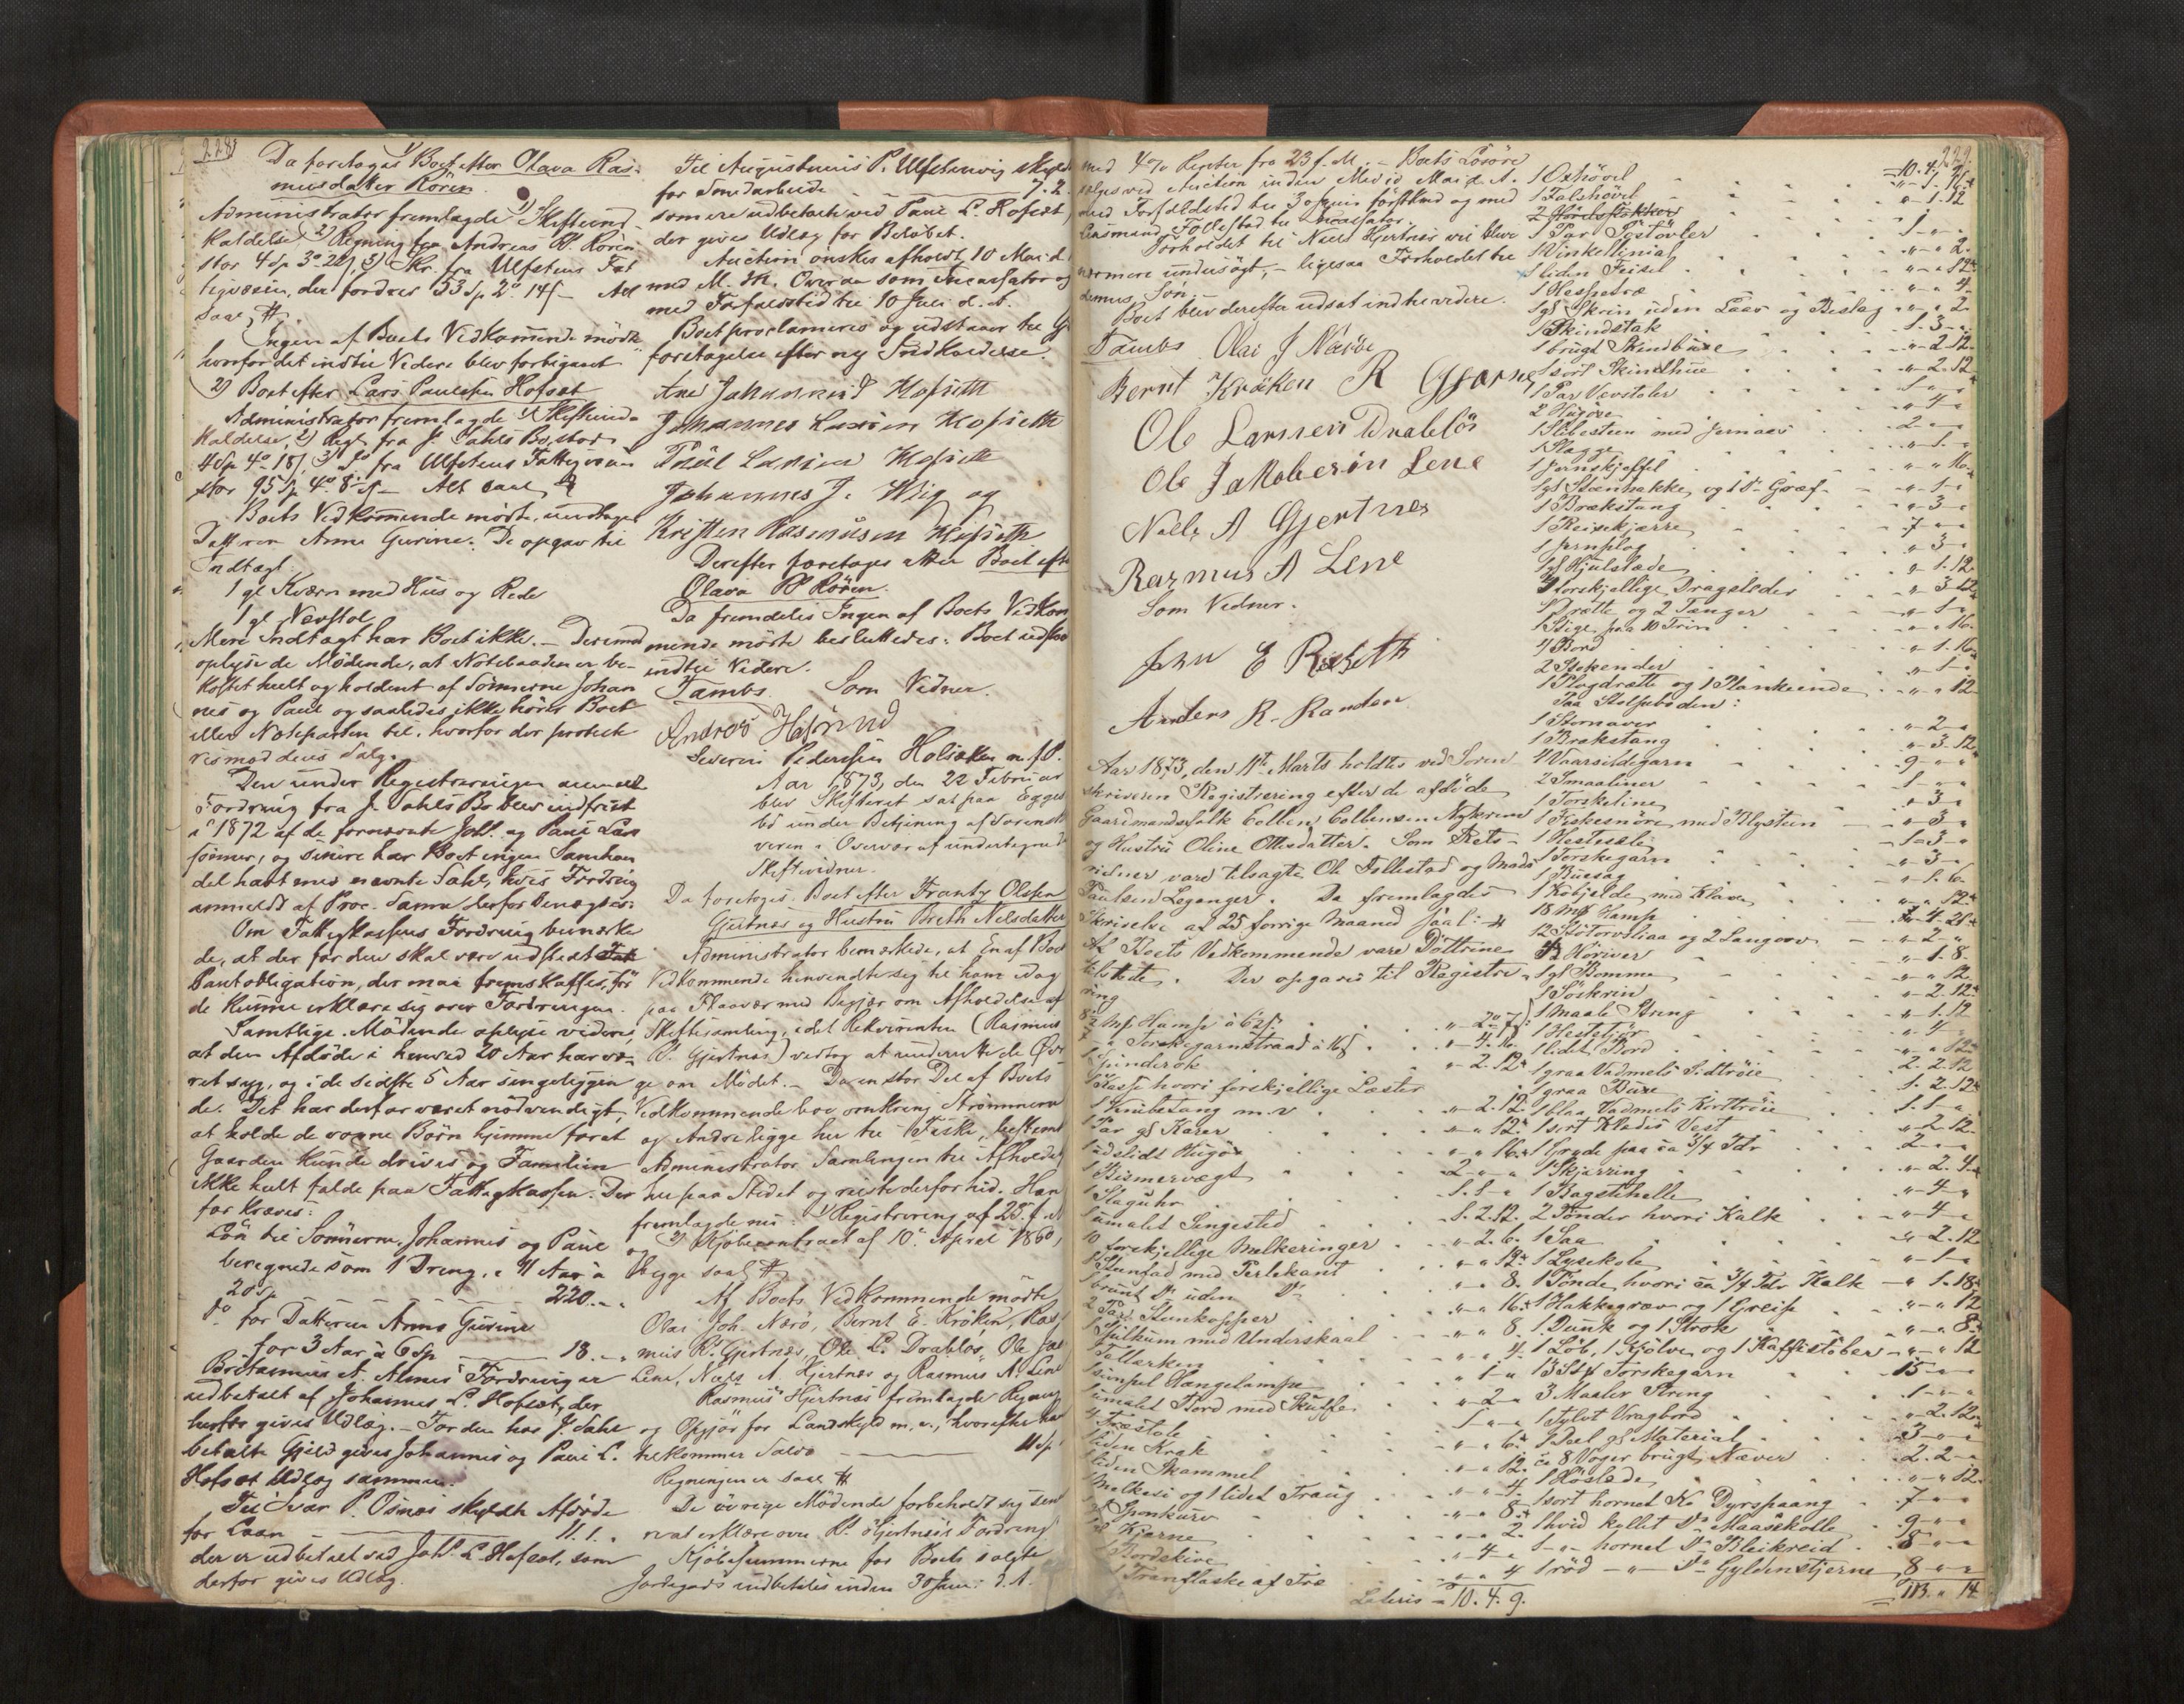 228
Da foretoges 1) Boet efter Olava Ras-
musdatter Rören.
Administrator fremlagde 1) Skifteind-
kaldelse, 2) Regning fra Andreas R. Rören
stor 4 Sp 3 o 22 s, 3) Skr. fra Ulfstens Fat
tigvæsen, der fordrer 53 Sp. 2 o. 14 s – Alt
saal. #.
Ingen af Boets Vedkommende mödte
hvorfor det indtil Videre blev forbigaaet
2) Boet efter Lars Paulsen Hofset
Administrator fremlagde 1) Skifteind-
kaldelse, 2) Regn. fra J. Dahls Bo, stor
4 Sp 4 o 18 s, 3) Do fra Ulfstens Fattigvæsen
stor 95 Sp. 4 o. 8 s – Alt saal. #
Boets Vedkommende mödte, undtagen
Datteren Anne Gurine. De opgav til
Indtægt.
1 gl Kværn med Hus og Rede
1 gl Vevstol
Mere Indtægt har Boet ikke. – Derimod
oplyste de Mödende, at Notebaaden er be-
kostet helt og holdent af Sönnerne Johan
nes og Paul og saaledes ikke hörer Boet
eller Noteparten til, hvorfor der protest-
eres mod dens Salg.
Den under Registreringen anmeldte
Fordring fra J. Dahls Bo blev indfriet
i 1872 af de fornævnte Johs. og Paul Lars
sönner, og senere har Boet ingen Samhan
del havt med nævnte Dahl, hvis Fordring
anmeldt af Proc. Lamm derfor benægtes.
Om Fattigkassens Fordring bemærke
de, at der for den skal være udstedt
Pantobligation, der maa fremskaffes, för
de kunne erklære sig over Fordringen.
Samtlige Mödende oplyse videre,
at den Afdöde i henved 20 Aar har væ-
ret syg, og i de sidste 5 Aar sengeliggen
de. Det har derfor været nödvendigt,
at holde de voxne Börn hjemme foratt
Gaarden kunde drives og Familien
ikke helt falde paa Fattigkassen. Der
for kræves:
Lön til Sönnerne Johannes og Paul
beregnede som 1 Dreng, i 11 Aar a
20 Sp 220. –
Do for Datteren Anne Gurine
for 3 Aar a 6 Sp 18. –
Britanius A. Almes Fordring er
udbetalt af Johannes L. Hofset, der
herfor gives Udlæg. – For den hos J. Dahl
betalte Gjeld gives Johannes og Paul L.
Hofset Udlæg sammen.
Til Ivar P. Osnes skyldte Afdöde
for Laan 11. 1.
der er udbetalt ved Johs. L. Hofset, som
derfor gives Udlæg.
Til Augustinus P. Ulfstenvig skyld
for Smedarbeide 7. 2.
som ere udbetalte ved Paul L. Hofset,
der gives Udlæg for Belöbet.
Auction önskes afholdt 10 Mai d.
med M. M. Overaa som Incassator og
med Forfaldstid til 10 Juli d. A.
Boet proclameres og udstaar til
foretagelse efter ny Indkaldelse.
Ane Johannesd Hofseth
Johannes Larsen Hofseth
Paul Larsen Hofseth
Johannes J. Wig og
Kristen Rasmusen Hofseth
Derefter foretoges atter Boet efter
Olava R. Rören.
Da fremdeles Ingen af Boets Vedkom
mende mödte besluttedes: Boet udstaar
indtil Videre.
Tambs Som Vidner.
Andreas Hasund
Severin Pedersen Holsæker m. f. P.
Aar 1873, den 22 Februar
blev Skifteret sat paa Egges
bö under Betjening af Sorenskri
veren i Overvær af undertegnede
Skiftevidner.
Da foretoges Boet efter Frantz Olsen
Gjertnæs og Hustru Breth Nilsdatter
Administrator bemærkede, at En af Boets
Vedkommende henvendte sig til ham idag
paa Flaavær med Begjær om Afholdelse af
Skiftesamling, idet Rekvirenten (Rasmus
R. Gjertnæs) vedtog at underrette de Övr
ge om Mödet. – Da en stor Del af Boets
Vedkommende bor omkring Strömmen
og Andre ligge her til Fiske, bestemte
Administrator Samlingen til Afholdelse
her paa Stedet og reiste derfor hid. Han
fremlagde nu: 1) Registrering af 25 f. M.
og 2) Kjöbecontract af 10de April 1860,
begge saal. #.
Af Boets Vedkommende mödte
Olai Joh. Nærö, Bernt E. Kröken, Ras
mus R. Gjertnæs, Ole L. Drablös, Ole Jac
Lene, Niels A. Hjertnæs og Rasmus A. Lene
Rasmus Hjertnæs fremlagde Regning
og Opgjör for Landskyld m. v., hvorefter han
tilkommer Saldo 11 Sp
Regningen er saal. #
De övrige Mödende forbeholdt sig sen
ere at erklære over R. Hjertnæs's Fordring
Kjöbesummerne for Boets solgte
Jordegods indbetales inden 30 Juni d. A.
229.
med 4 % Renter fra 23 f. M. – Boets Lösöre
sælges ved Auction inden Medio Mai d. A.
med Forfaldstid til 30 Juni förstkmd og med
Lensmand Follestad til Incassator.
Forholdet til Niels Hjertnæs vil blive
nærmere undersögt, – ligesaa Forholdet til
dennes Sön.
Boet blev derefter udsat indtil videre.
Tambs Olai J Nærö
Bernt Kröken R Gjærnes
Ole Larssen Drablös
Ole Jakobesön Lene
Nells A Gjertnes
Rasmus A Lene
Som Vidner.
John E Röiseth
Anders R. Randen
Aar 1873, den 11te Marts holdtes ved Soren
skriveren Registrering efter de afdöde
Gaardmandsfolk Colben Colbensen Nykrem
og Hustru Oline Ottisdatter. Som Rets-
vidner vare tilsagte Ole Follestad og Mads
Paulsen Leganger. Da fremlagdes
Skrivelse af 25 forrige Maaned saal: #
Af Boets Vedkommende vare Döttrene
tilstede. Der opgaves til Registre-
ring
8½ Mp Hamp à 6 2/3 s. " – 2 o 7 s
7 " Torskegarnstraad à 16 s " – 4. 16.
1 Spinderok " – 2. 12
1 Kasse hvori forskjellige Læster
1 Knibetang m. v. " – 2. 12.
1 Par gl Karer " – " 12.
1 udslidt Hugöx " – " 16.
1 Bismervægt 2 – " "
1 Slaguhr 1. 1 "
1 umalet Sengested 1. 2. 12.
10 forskjellige Melkeringer " – 2. 6.
1 Stenfad med Perlekant " – " 12.
1 brunt Do uden Do " – " 8.
2 Par Stenkopper " – " 16.
1 Spilkum med Underskaal " – " 8.
1 Tellerken " – " 4.
1 simpel Hængelampe " 1 – "
1 umalet Bord med Skuffe " – 2 – "
4 Træstole 1 – " "
1 liden Krak " – " 6.
1 liden Skammel " – " 12.
1 Melkesi og 1 lidet Traug " – " 4.
1 gl Sponkurv " – " 8.
1 gl Kjærne " – " 2.
1 Bordskive " – 4 – "
1 Tranflaske af Træ " – " 4
Lateris – 10. 4. 9.
– 10. 4. 9.
1 Oxhövel " – 1. 16.
1 Falshövel " – 1. 12
1 Par Söstövler 1 – " –
1 Vinkellinial " – " 2.
1 liden Feisel " – " 12.
1 Hespetræ " – " 4
1 gl Skrin uden Laas og Beslag " – " 2.
1 Skindstak 1. 3 – "
1 brugt Skindbuxe " – 2. 12.
1 sort Skindhue " – 2. 12
1 Par Vevstoler 1 – " –
2 Hugöxe " – 4 – "
1 Slibesteen med Jernaas 2 – " "
1 Slægge " – 1 – "
1 Jernskjeffel " – " 16.
1 gl Steenhakke, og 1 Do Græf " – 1 – "
1 Brækstang " – 3 – "
1 Reisekjærre 7 – " "
1 Jernplog " – 3 – "
1 gl Hjulslæde " – 1. 12.
4 forskjellige Dragslæder " – 3. 12
1 Drætte og 2 Tænger " – 1 – "
1 Stige paa 10 Trin " – " 16.
4 Bord " – 1. 16
2 Stokender " – 1 – "
1 Plogdrætte og 1 Plankeende " – " 12
Paa Stolpeboden:
1 Stornaver " – 2 – "
1 Brækstang " – 3. 12
4 Vaarsildegarn 9 – " "
2 Smaaliner 1 – " "
1 Torskeline " – 3 – "
1 Fiskesnöre med Blysteen " – 3 – "
1 Hestesæle 1 – 3 – "
1 Torskegarn " – 3 – "
1 Buesag " – 1. 6.
1 Kobjelde med Klave " – " 12
18 Mp Hamp " – 4. 21
12 Slötorvliaa og 2 Langorv " – 2 – "
4 Höriver " – 1. 8.
1 gl Bomme " – " 12.
1 Söskrin " – 2. 12.
1 Maale Streng " – 1. 12
1 Hestebjör " – 4 – "
1 lidet Bord " – " 12.
1 graa Vadmels Sidtröie 2. 2. 12
1 graa Buxe 1. 2. 12.
1 blaa Vadmels Korttröie 1. 1 – "
1 sort Klædes Vest " – 2. 12.
1 Gryde paa ca 3/4 Tdr 2 – " "
1 Skjærring " – 2. 4
1 Bagstehelle " – 4 – "
2 Tönder hvori Kalk " – 4 – "
1 Saa " – 2. 12
1 Lysekole " – 1 – "
1 Tönde hvori ca 3/4 Tdr Kalk – " 1. 18.
1 Hakkegræv og 1 Greip " – " 12
1 Dunk og 1 Strok " – " 8.
1 Löb, 1 Kjölve og 1 Kaffestöber " – " 12
13 Stk Torskegarn 15 – "
3 Maaler Streng 1 – " "
1 Tylvt Vragbord " – 2. 12.
1 Deel gl Material 3 – " "
ca 8 Voger brugt Næver 2. 2 – "
1 Höslæde " – " 12.
1 sort hornet Ko Dyrspaang 7 – " "
1 hvid kollet Do Maasekolle 9 – " "
1 – " – hornet Do Bleikreid 8 – " "
1 röd – " – Do Gyldenstjerne 8 – " "
= 113. " 14